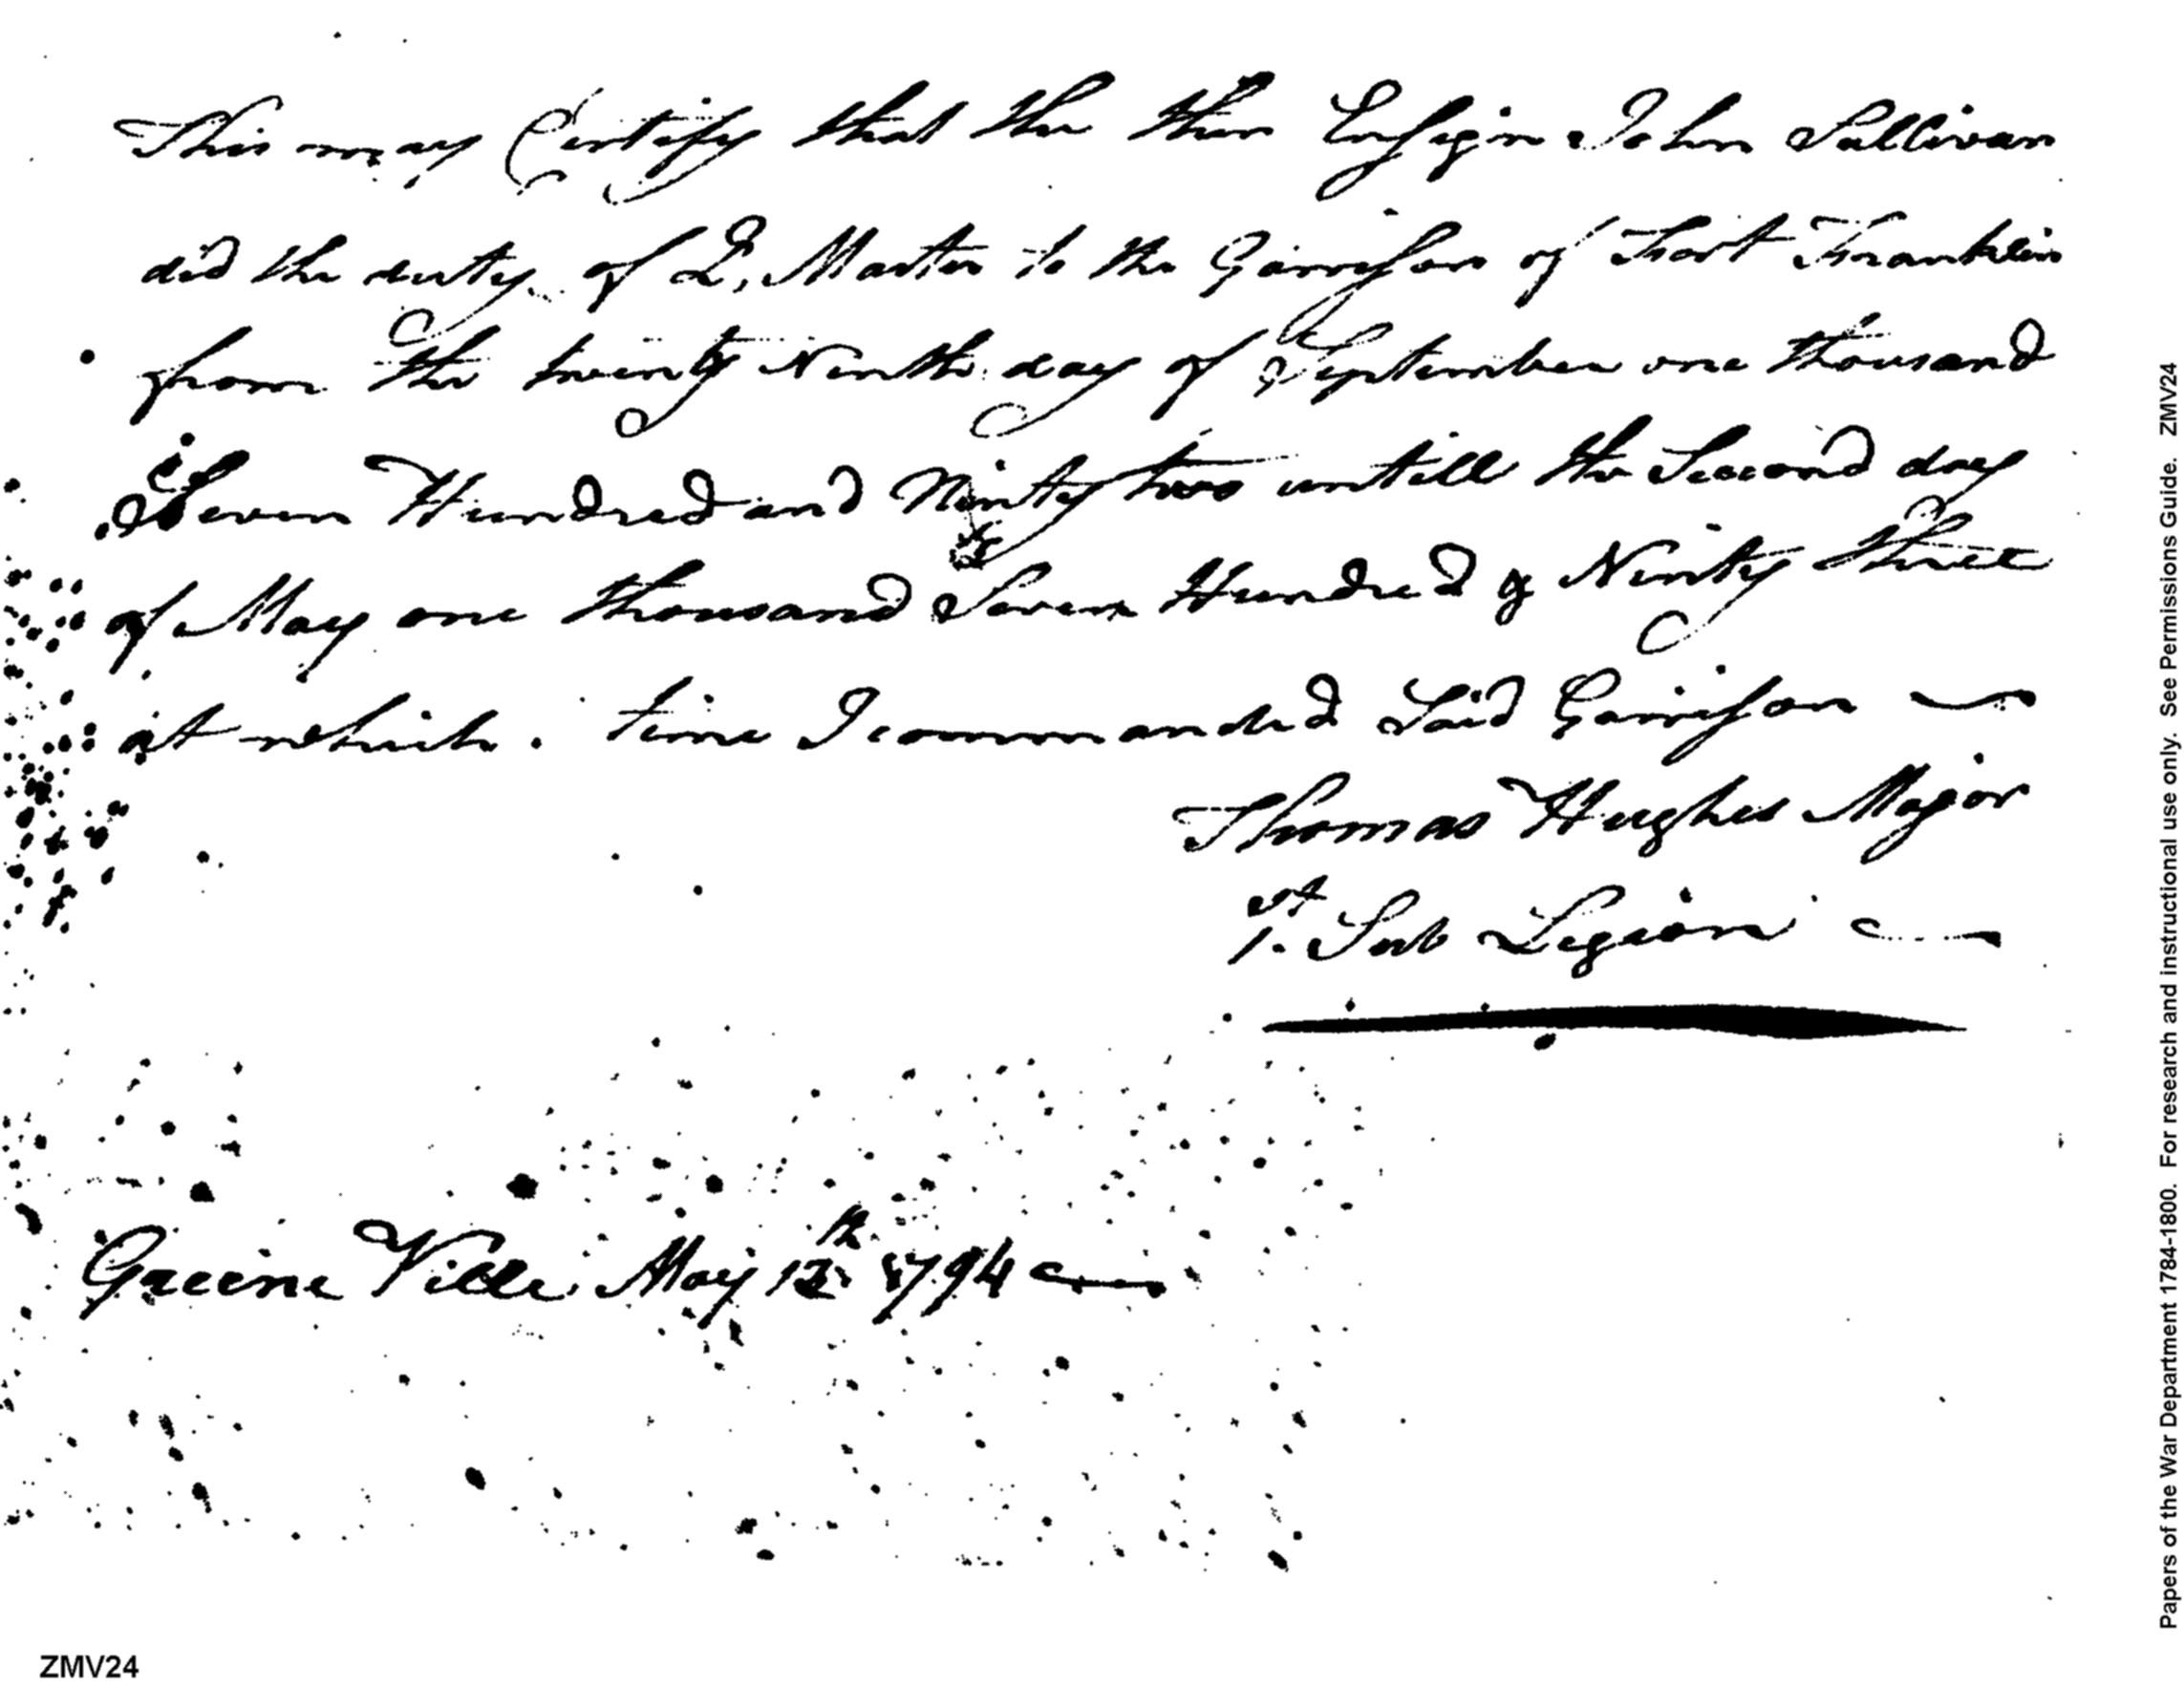 This may Certify that the then Ensign John Sullivan
did the duty of Q, Master to the Garrison of Fort Franklin
from the twenty Ninth day of September one thousand
Seven Hundred and Ninty two untill the Second day
of May one thousand Seven Hundred & Ninty three
at which time I commanded Said Garrison
Thomas Hughes Major
1st Sub Legion
Greene Ville May 12th 1794
ZMV24
Papers of the War Department 1784-1800. For research and instructional use only. See Permissions Guide. ZMV24